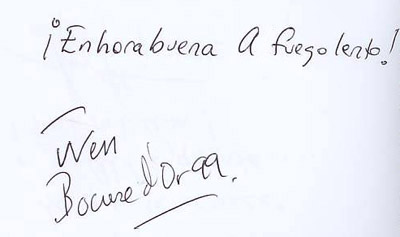 ¡Enhorabuena A fuego lento!
Wen
Bocuse d'Or 99.